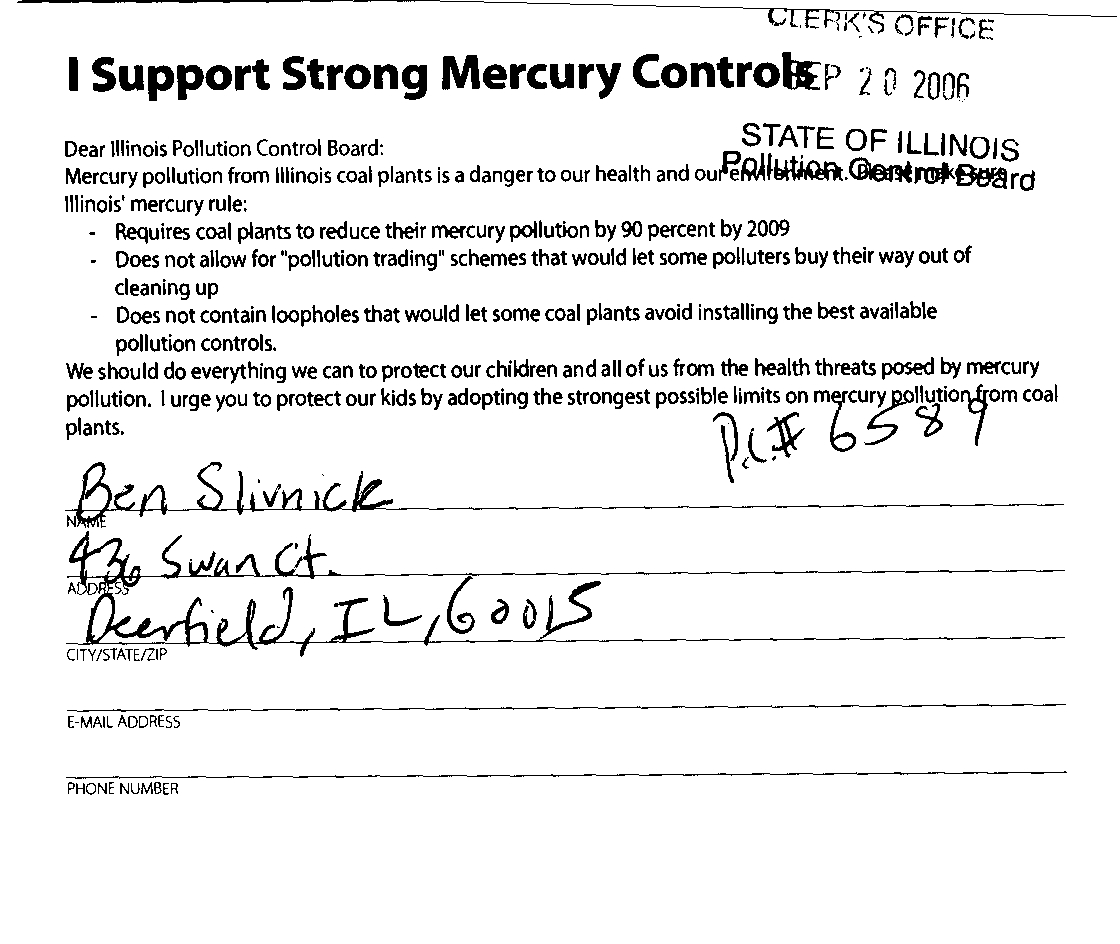 CLERK'S OFFICE
I Support Strong Mercury Controls
SEP 20 2006
STATE OF ILLINOIS
Pollution Control Board
Dear Illinois Pollution Control Board:
Mercury pollution from Illinois coal plants is a danger to our health and our environment. Please make sure
Illinois' mercury rule:
- Requires coal plants to reduce their mercury pollution by 90 percent by 2009
- Does not allow for "pollution trading" schemes that would let some polluters buy their way out of
cleaning up
- Does not contain loopholes that would let some coal plants avoid installing the best available
pollution controls.
We should do everything we can to protect our children and all of us from the health threats posed by mercury
pollution. I urge you to protect our kids by adopting the strongest possible limits on mercury pollution from coal
plants.
P.C.# 6589
Ben Slivnick
NAME
436 Swan Ct.
ADDRESS
Deerfield, IL, 60015
CITY/STATE/ZIP
E-MAIL ADDRESS
PHONE NUMBER